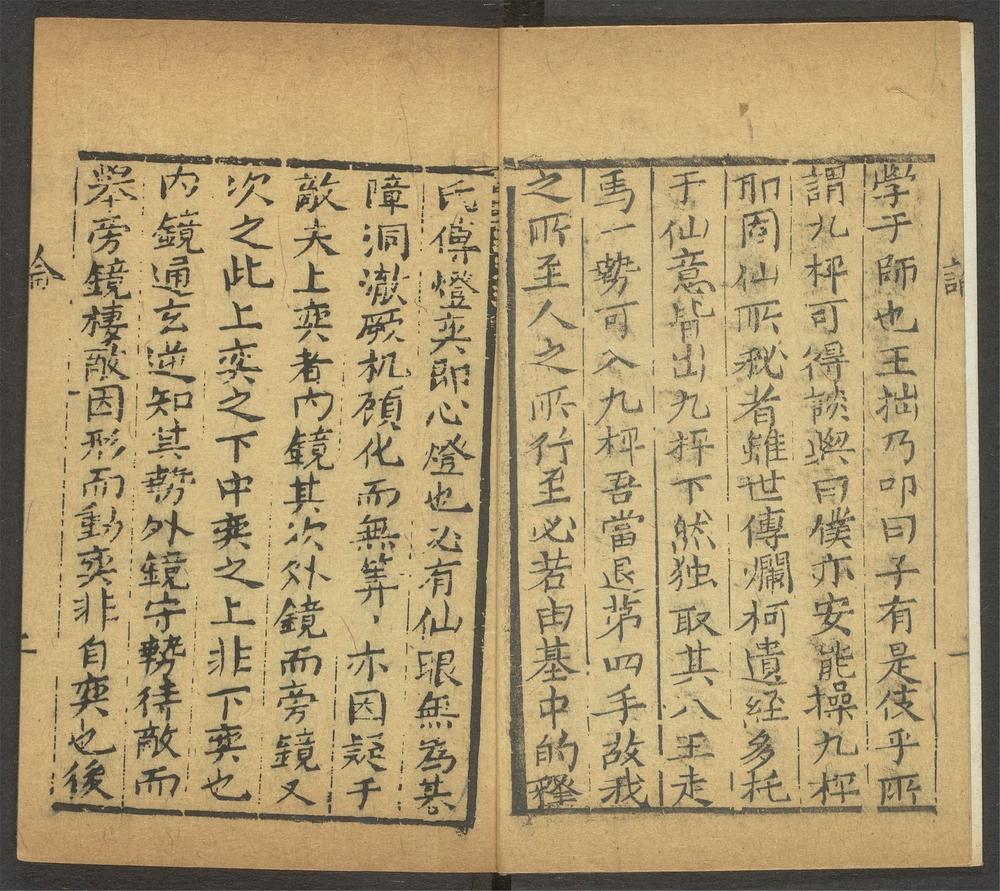 学于師也王拙乃叩曰子有是伎乎所
謂九枰可得談與曰僕亦安能操九枰
耶固仙所秘者雖世傳爛柯遺経多托
于仙意皆出九枰下然独取其八王走
馬一勢可入九枰吾當退苐四手故我
之所至人之所行至必若由基中的釋
氏傳燈奕即心燈也必有仙眼無為棊
障洞澈厥机頋化而無筭亦因疑手
敵夫上奕者内鏡其次外鏡而旁鏡又
次之此上奕之下中奕之上非下奕也
内鏡通玄逆知其勢外鏡守勢待敵而
舉旁鏡棲敵因形而動奕非自奕也後